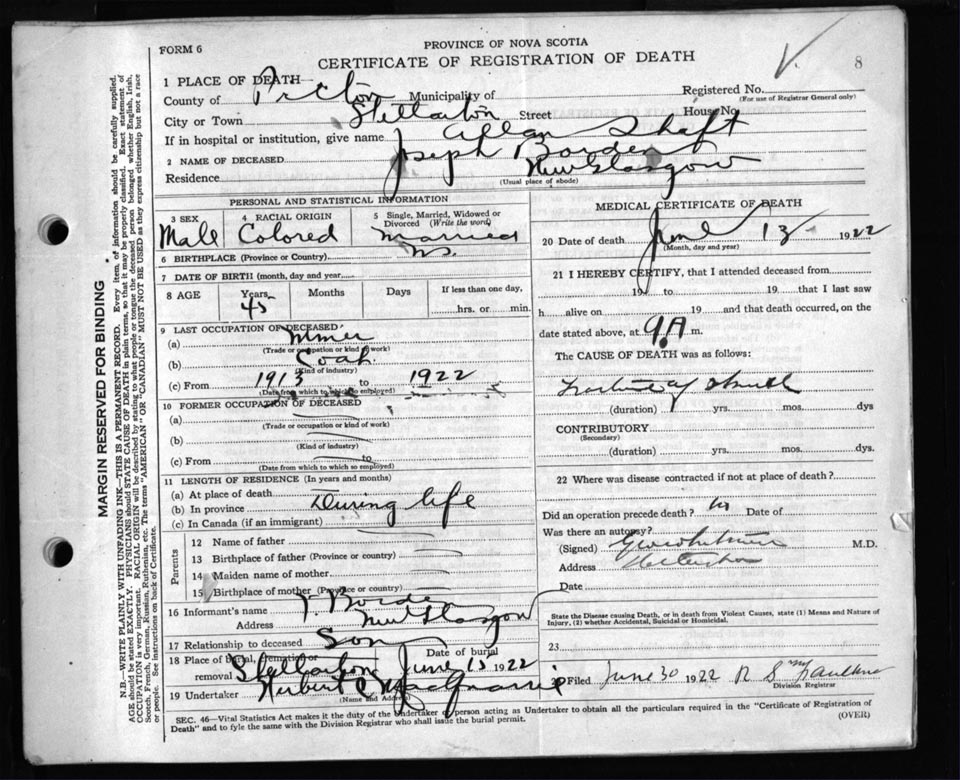 FORM 6
PROVINCE OF NOVA SCOTIA
CERTIFICATE OF REGISTRATION OF DEATH
8
1 PLACE OF DEATH—
County of Pictou Municipality of Registered No.
(For use of Registrar General only)
City or Town Stellarton Street House No.
If in hospital or institution, give name Allan Shaft
2 NAME OF DECEASED Joseph Borden
Residence New Glasgow
(Usual place of abode)
PERSONAL AND STATISTICAL INFORMATION
3 SEX 4 RACIAL ORIGIN 5 Single, Married, Widowed or Divorced (Write the word)
Male Colored Married
6 BIRTHPLACE (Province or Country) N.S.
7 DATE OF BIRTH (month, day and year)
8 AGE Years Months Days If less than one day,
45 hrs. or min.
9 LAST OCCUPATION OF DECEASED
(a) Miner
(Trade or occupation or kind of work)
(b) Coal
(Kind of industry)
(c) From 1913 to 1922
(Date from which to which so employed)
10 FORMER OCCUPATION OF DECEASED
(a)
(Trade or occupation or kind of work)
(b)
(Kind of industry)
(c) From to
(Date from which to which so employed)
11 LENGTH OF RESIDENCE (In years and months)
(a) At place of death
(b) In province During life
(c) In Canada (if an immigrant)
Parents
12 Name of father
13 Birthplace of father (Province or country)
14 Maiden name of mother
15 Birthplace of mother (Province or country)
16 Informant's name Borden
Address New Glasgow
17 Relationship to deceased Son
18 Place of Burial, Cremation or removal Stellarton Date of burial June 15 1922
19 Undertaker Herbert
(Name and Address)
MEDICAL CERTIFICATE OF DEATH
20 Date of death June 13 1922
(Month, day and year)
21 I HEREBY CERTIFY, that I attended deceased from
19 to 19 that I last saw
h alive on 19 and that death occurred, on the
date stated above, at 9 A m.
The CAUSE OF DEATH was as follows:
(duration) yrs. mos. dys
CONTRIBUTORY
(Secondary)
(duration) yrs. mos. dys.
22 Where was disease contracted if not at place of death?
Did an operation precede death? Date of
Was there an autopsy?
(Signed) M.D.
Address
Date
State the Disease causing Death, or in death from Violent Causes, state (1) Means and Nature of Injury, (2) whether Accidental, Suicidal or Homicidal.
23
Filed June 30 1922
Division Registrar
SEC. 46—Vital Statistics Act makes it the duty of the Undertaker or person acting as Undertaker to obtain all the particulars required in the "Certificate of Registration of
Death" and to fyle the same with the Division Registrar who shall issue the burial permit.
(OVER)
MARGIN RESERVED FOR BINDING
N.B.—WRITE PLAINLY WITH UNFADING INK—THIS IS A PERMANENT RECORD. Every item of information should be carefully supplied.
AGE should be stated EXACTLY. PHYSICIANS should STATE CAUSE OF DEATH in plain terms, so that it may be properly classified. Exact statement of
OCCUPATION is very important. RACIAL ORIGIN will be described by stating to what people or tongue the deceased person belonged whether English, Irish,
Scotch, French, German, Russian, Ruthenian, etc. The terms "AMERICAN" OR "CANADIAN" MUST NOT BE USED as they express citizenship but not a race
or people. See instructions on back of Certificate.